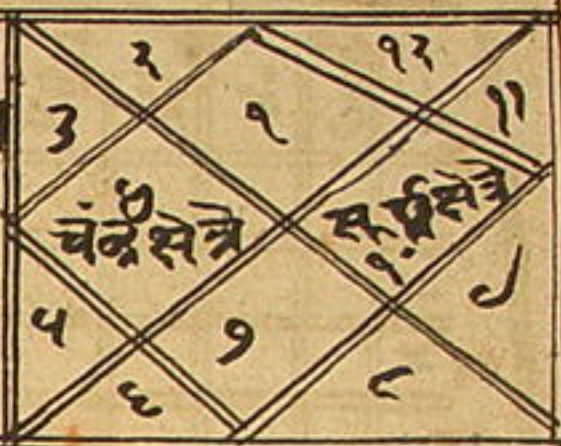 २ १२
३ १ ११
४
चंद्रक्षेत्रे सूर्यक्षेत्रे
१०
५ ७ ९
६ ८